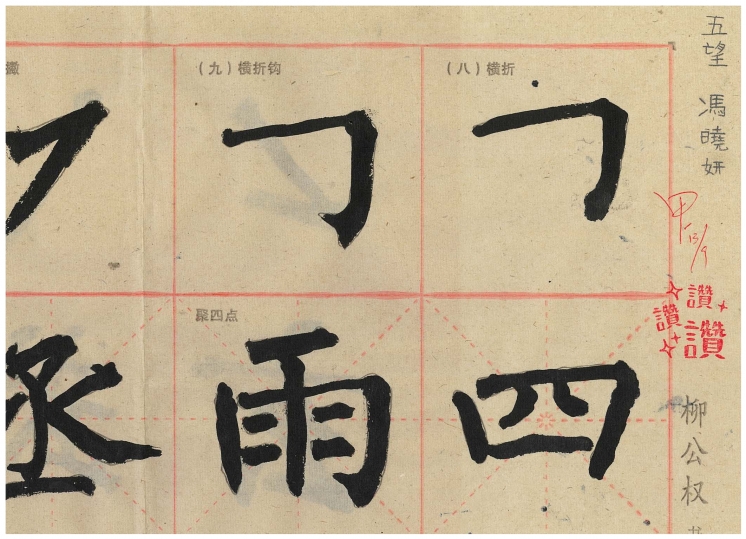 五望 馮曉妍
甲 13/9
讚
讚
讚
柳公权
（八）横折
四
（九）横折钩
聚四点
雨
丞